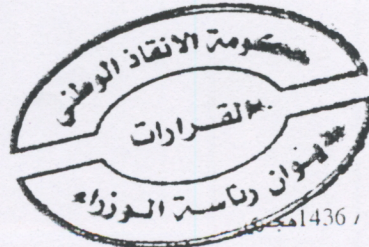 حكومة الانقاذ الوطني
القرارات
ديوان رئاسة الوزراء
1436هجري